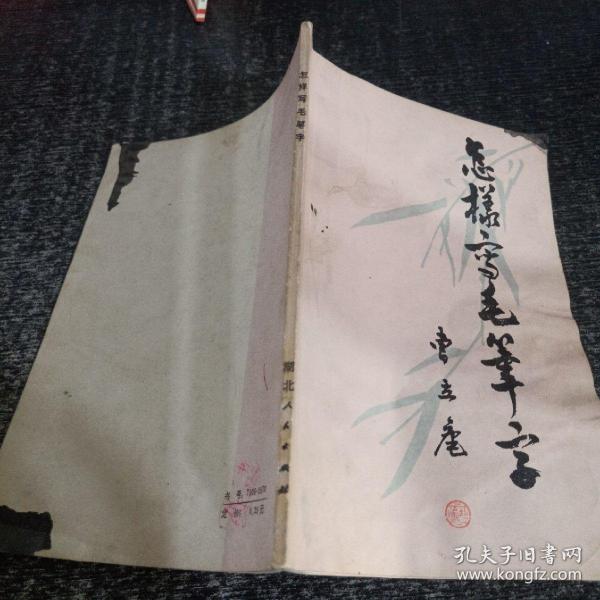 怎樣寫毛筆字
曹立庵
怎样写毛笔字
湖北人民出版社
书号:7106·1578
定价: 0.35元
孔夫子旧书网
www.kongfz.com